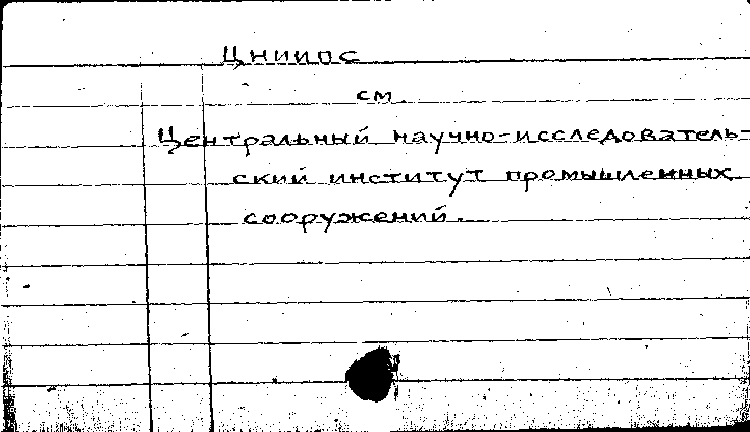 ЦНИИПС
см
Центральный научно-исследователь-
ский институт промышленных
сооружений.